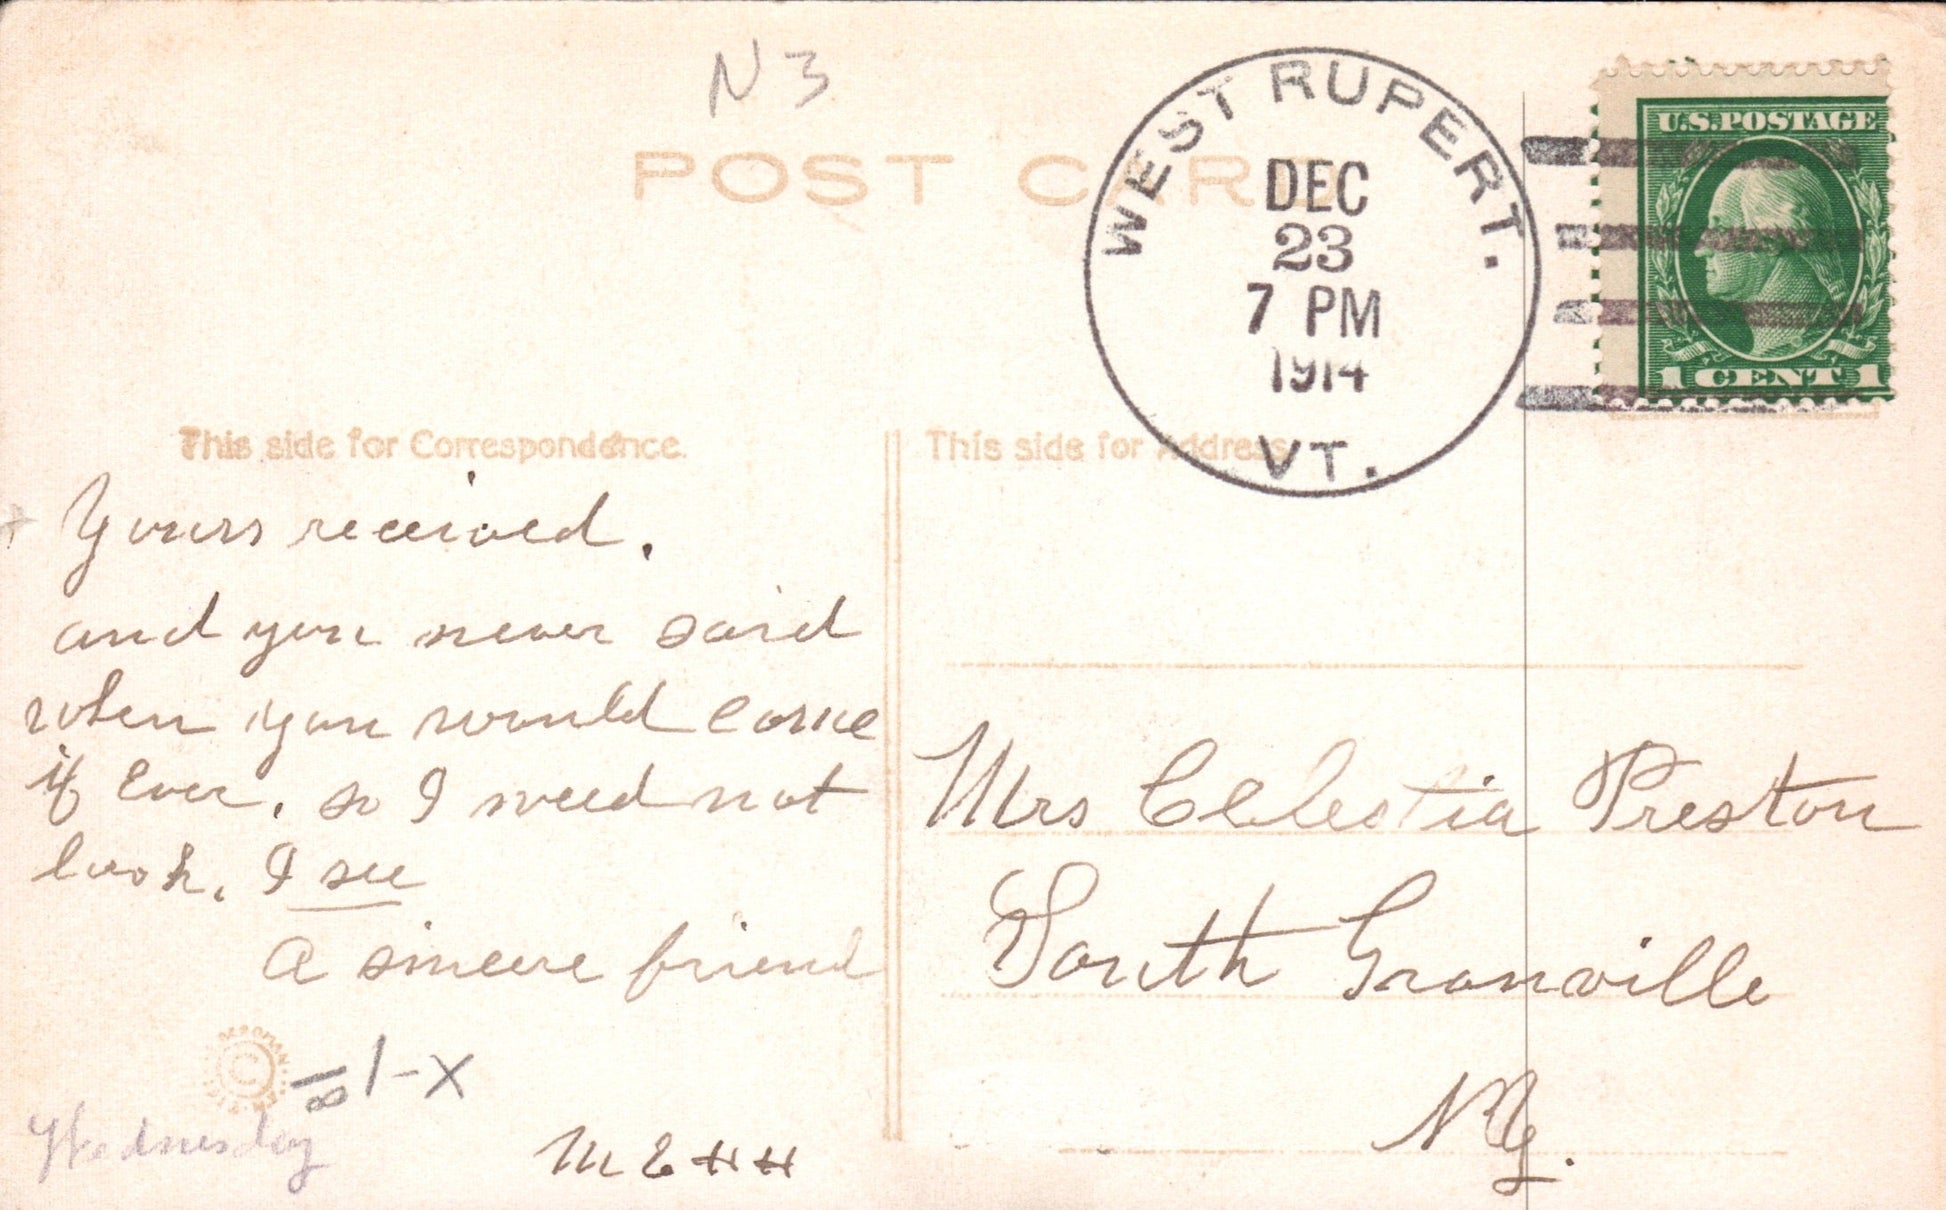 N 3
POST CARD
WEST RUPERT.
DEC
23
7 PM
1914
VT.
U.S.POSTAGE
1 CENT 1
This side for Correspondence.
Yours received.
and you never said
when you would come
if Ever. so I need not
look. I see
A sincere friend
1-X
Wednesday
M E H H
This side for Address
Mrs Celestia Preston
South Granville
NY.